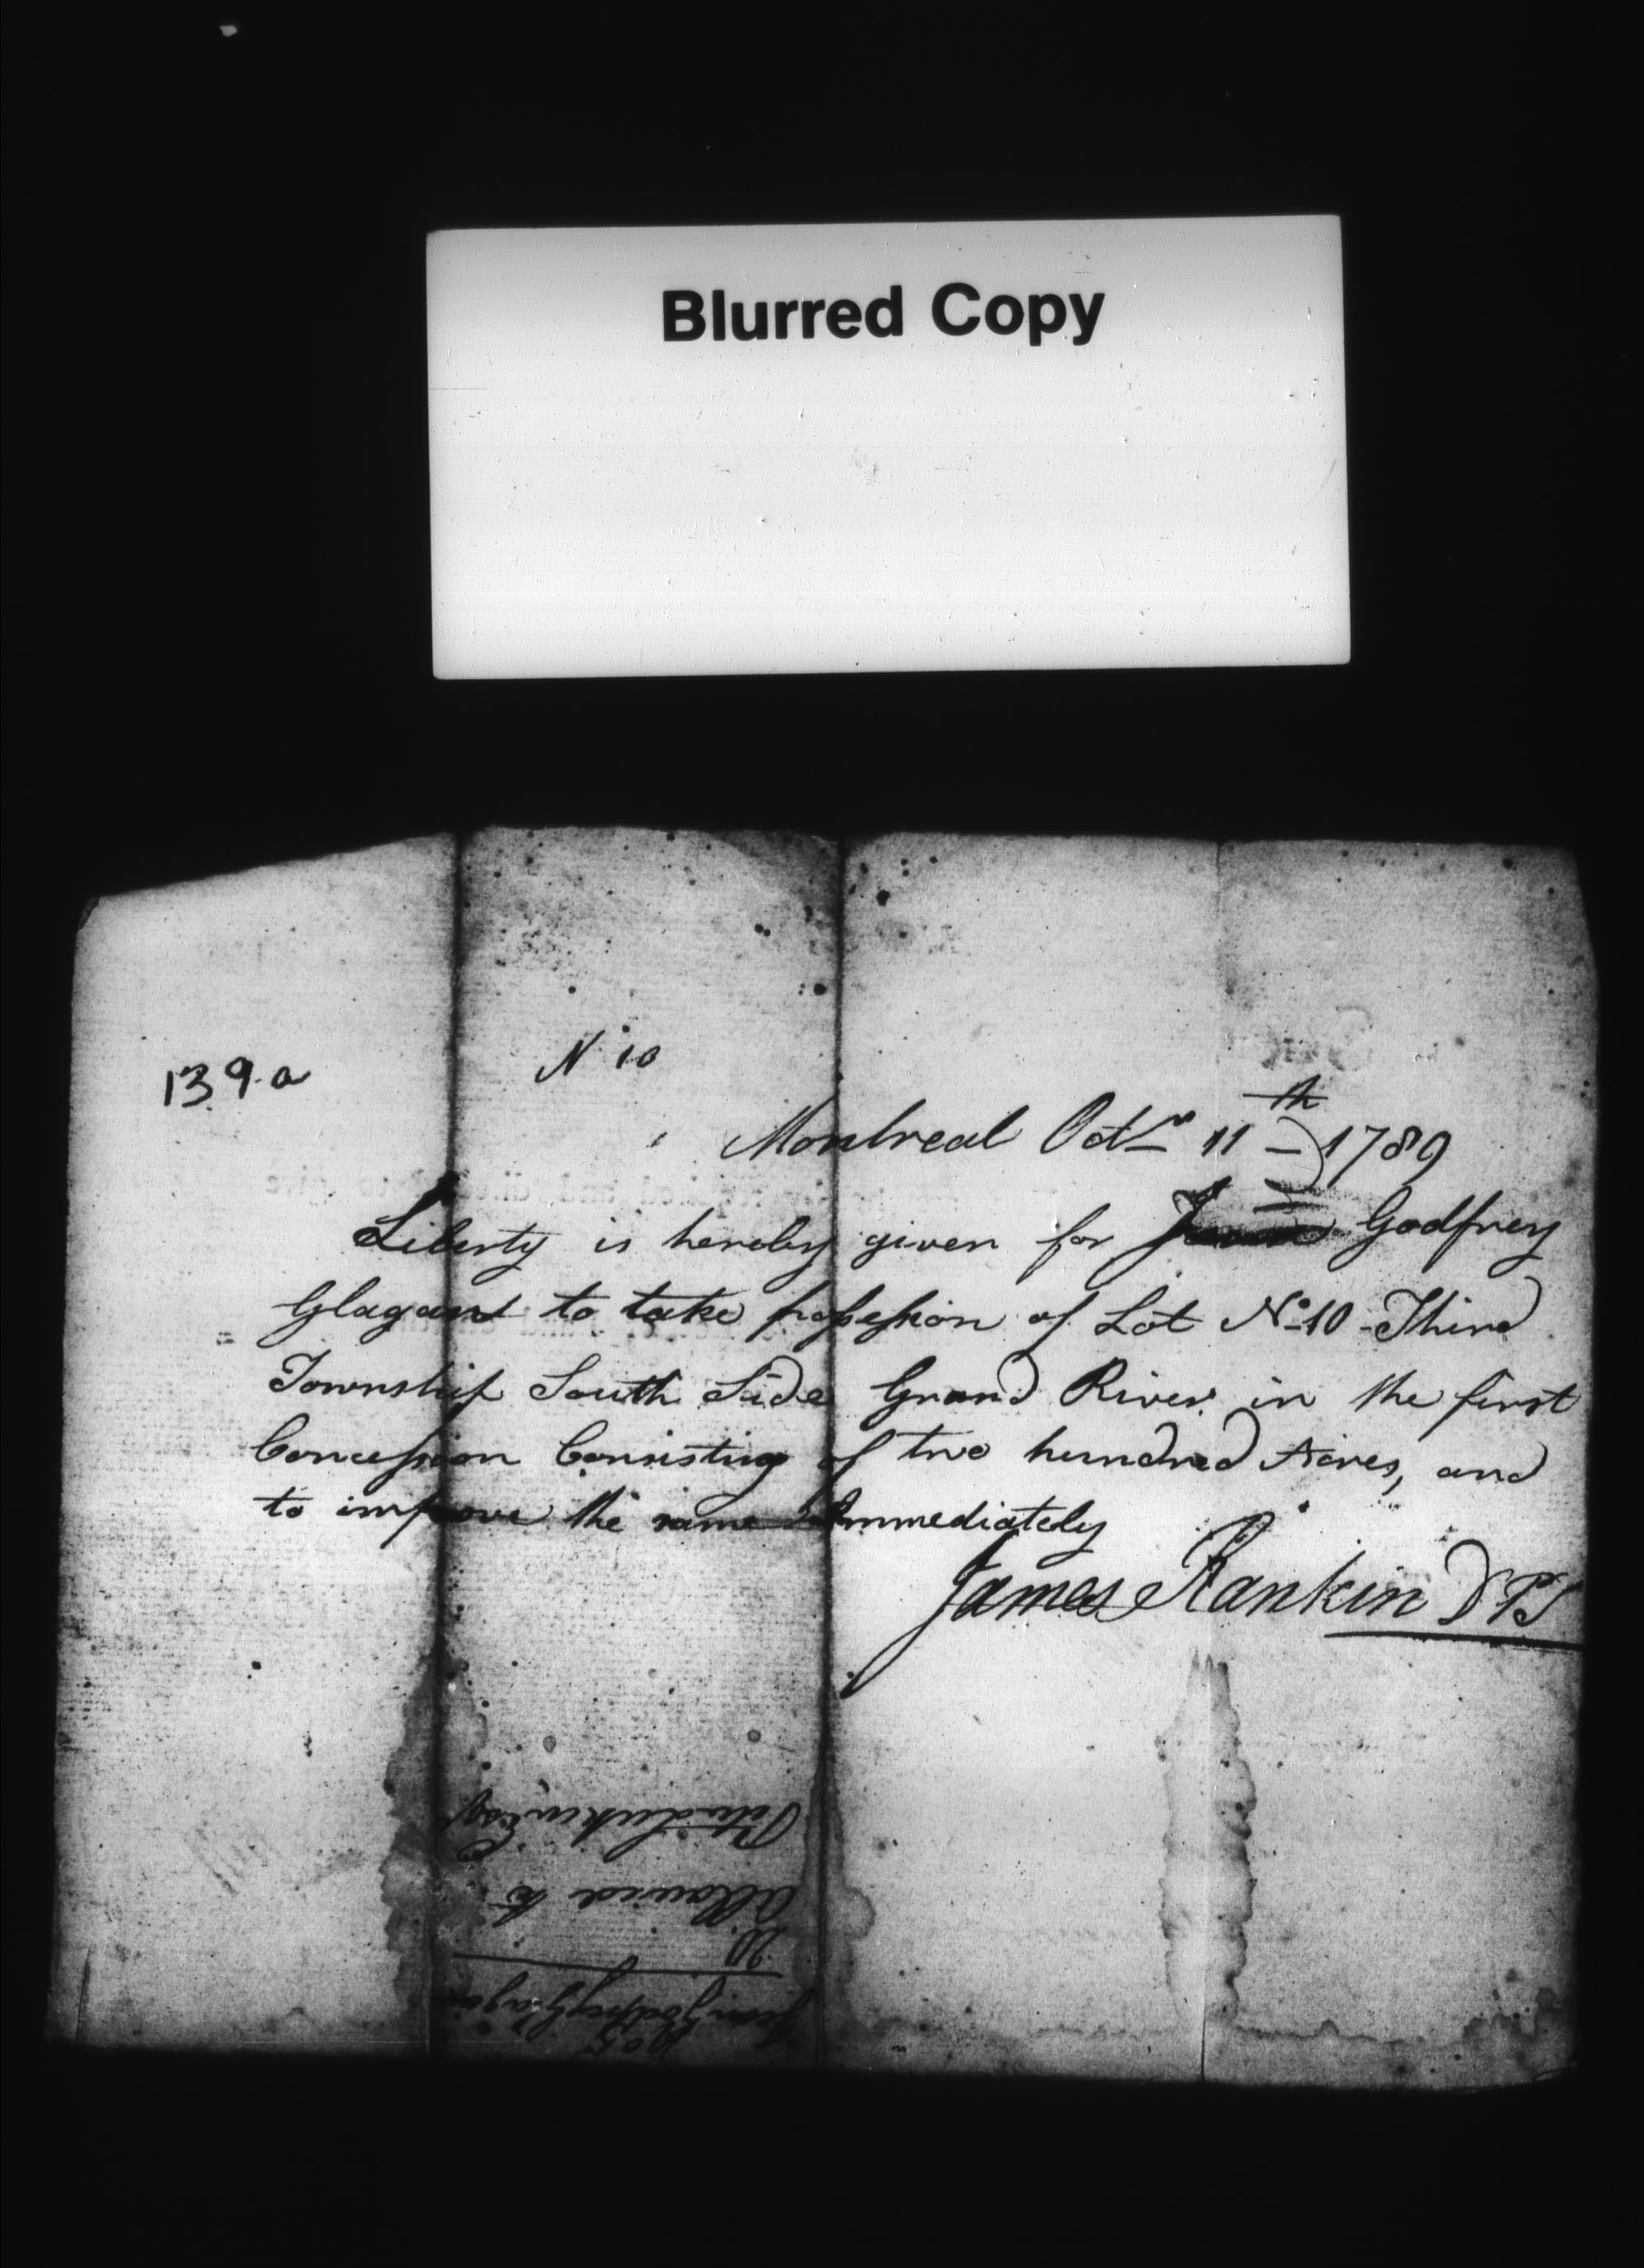 Blurred Copy
139.a
N 10
Montreal Octr 11th 1789
Liberty is hereby given for Godfrey
Glagand to take possession of Lot No 10 Third
Township South Side Grand River in the first
Concession Consisting of two hundred Acres, and
to improve the same Immediately
James Rankin DPS
Jean Godfrey
allowed to
Peter Lukin Esqr